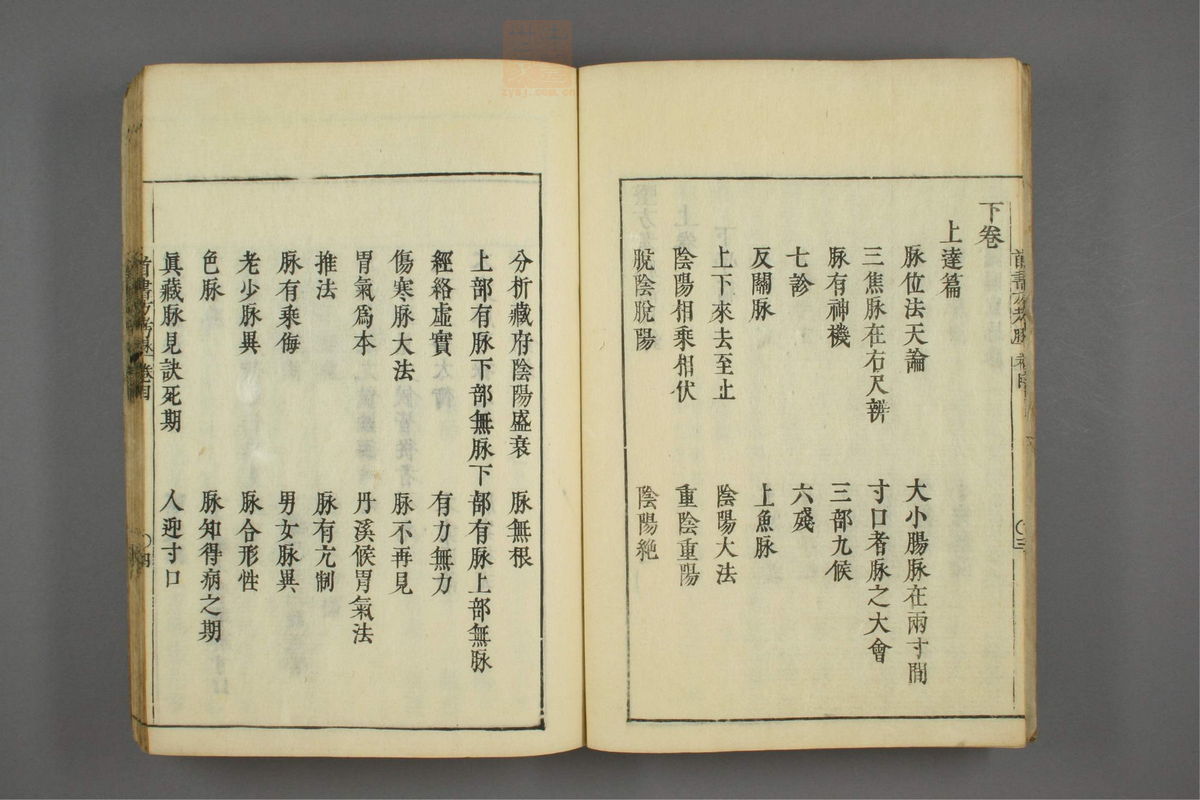 下卷
上達篇
脉位法天論　大小腸脉在兩寸間
三焦脉在右尺辨　寸口者脉之大會
脉有神機　三部九候
七診　六殘
反關脉　上魚脉
上下來去至止　陰陽大法
陰陽相乘相伏　重陰重陽
脫陰脫陽　陰陽絶
分析藏府陰陽盛衰　脉無根
上部有脉下部無脉下部有脉上部無脉
經絡虛實　有力無力
傷寒脉大法　脉不再見
胃氣爲本　丹溪候胃氣法
推法　脉有亢制
脉有乘侮　男女脉異
老少脉異　脉合形性
色脉　脉知得病之期
眞藏脉見訣死期　人迎寸口